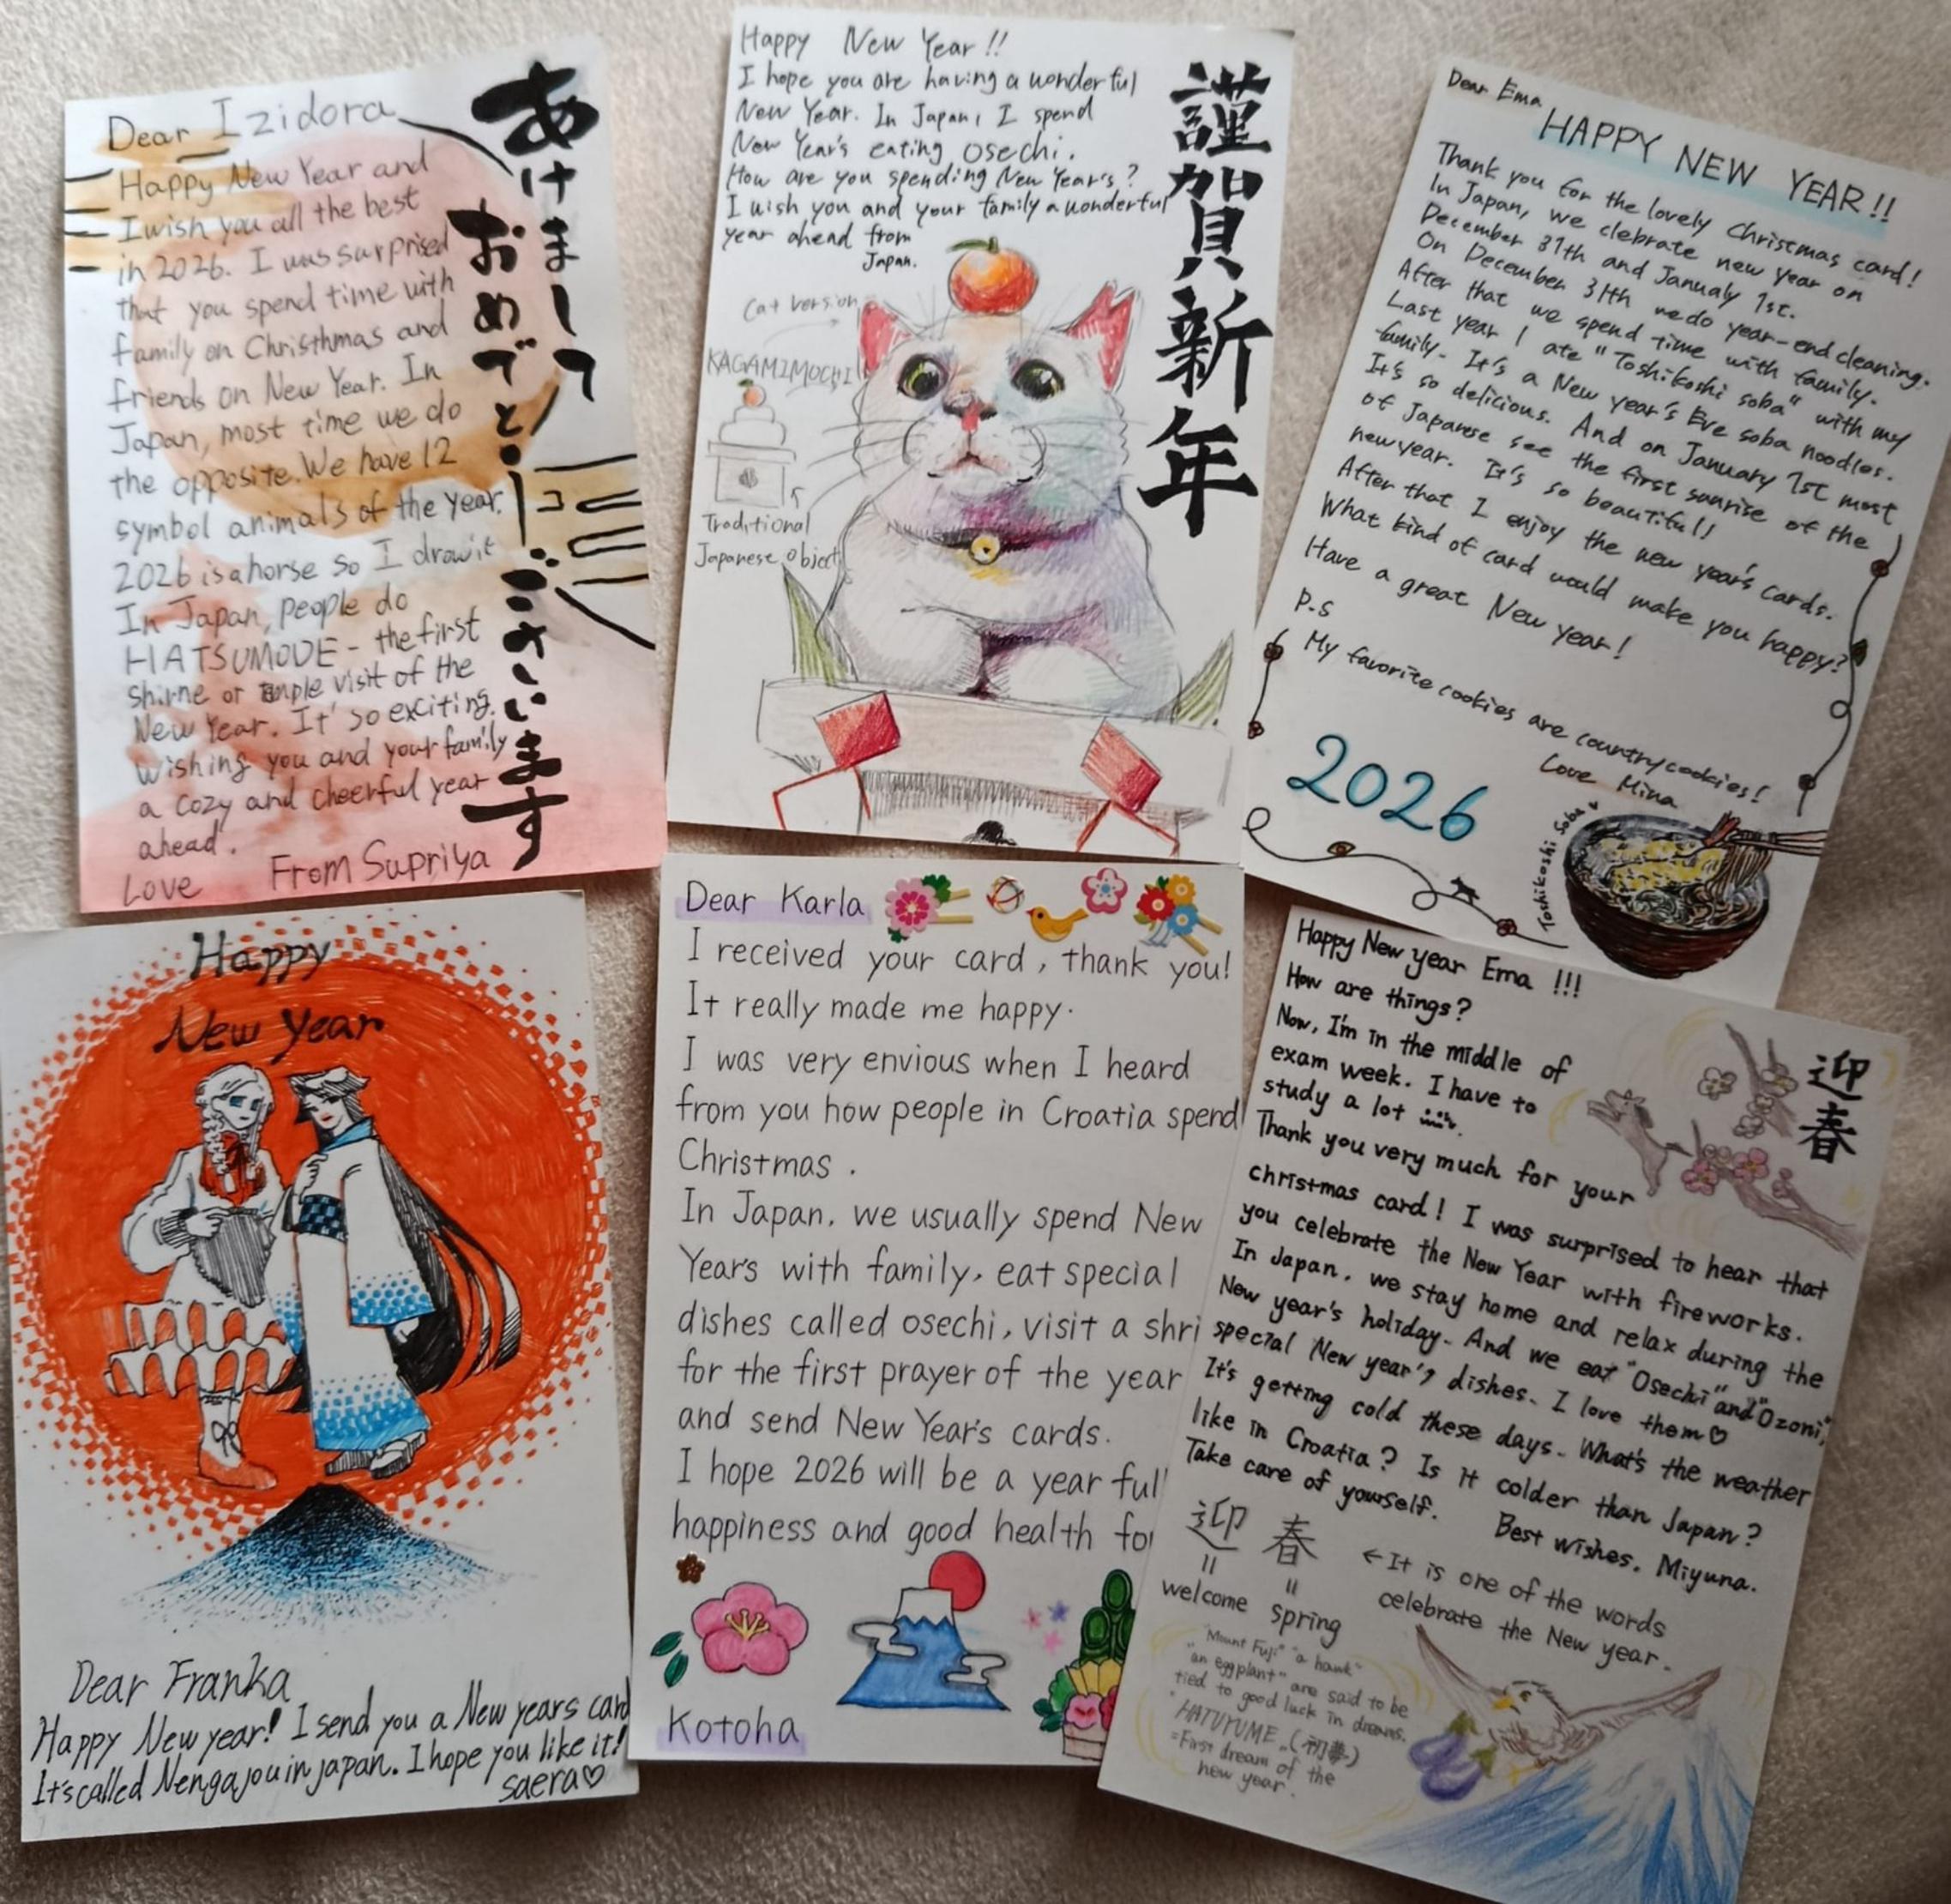 Dear Izidora
Happy New Year and
I wish you all the best
in 2026. I was surprised
that you spend time with
family on Christhmas and
friends on New Year. In
Japan, most time we do
the opposite. We have 12
symbol animals of the year.
2026 is a horse so I draw it
In Japan, people do
HATSUMODE - the first
shirne or temple visit of the
New Year. It' so exciting.
Wishing you and your family
a cozy and cheerful year
ahead.
Love From Supriya
あけまして
おめでとーございます
Happy New Year!!
I hope you are having a wonderful
New Year. In Japan, I spend
New Year's eating osechi.
How are you spending New Year's?
I wish you and your family a wonderful
year ahead from
Japan.
謹賀新年
Cat version
KAGAMIMOCHI
Traditional
Japanese object
Dear Ema
HAPPY NEW YEAR!!
Thank you for the lovely Christmas card!
In Japan, we clebrate new year on
December 31th and Janualy 1st.
On December 31th we do year-end cleaning.
After that we spend time with family.
Last year I ate "Toshikoshi soba" with my
family. It's a New year's Eve soba noodles.
It's so delicious. And on January 1st most
of Japanese see the first sunrise of the
new year. It's so beautiful!
After that I enjoy the new year's cards.
What kind of card would make you happy?
Have a great New Year!
P.S
My favorite cookies are country cookies!
Love Mina
2026
Toshikoshi Soba
Happy
New Year
Dear Franka
Happy New year! I send you a New years card
It's called Nengajou in japan. I hope you like it!
saera♡
Dear Karla
I received your card, thank you!
It really made me happy.
I was very envious when I heard
from you how people in Croatia spend
Christmas.
In Japan, we usually spend New
Years with family, eat special
dishes called osechi, visit a shri
for the first prayer of the year
and send New Year's cards.
I hope 2026 will be a year full
happiness and good health for
Kotoha
Happy New year Ema !!!
How are things?
Now, I'm in the middle of
exam week. I have to
study a lot
Thank you very much for your
christmas card! I was surprised to hear that
you celebrate the New Year with fireworks.
In Japan, we stay home and relax during the
New year's holiday. And we eat "Osechi" and "Ozoni",
special New year's dishes. I love them♡
It's getting cold these days. What's the weather
like in Croatia? Is it colder than Japan?
Take care of yourself.
Best wishes, Miyuna.
迎春
迎 春
=
=
welcome spring
←It is one of the words
celebrate the New year.
"Mount Fuji" "a hawk"
"an eggplant" are said to be
tied to good luck in dreams.
"HATUYUME" (初夢)
=First dream of the
new year.